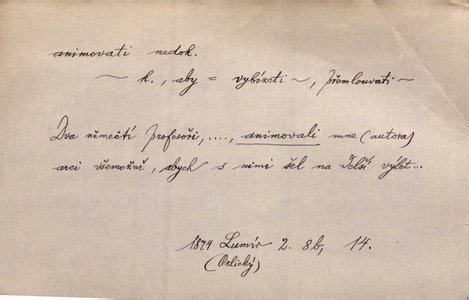 animovati nedok.
~ k., aby = vybízeti ~, přemlouvati ~
Dva němečtí profesoři, ...., animovali mne (autora)
arci všemožně, abych s nimi šel na delší výlet...
1874 Lumír 2. 8b, 14.
(Orlický)